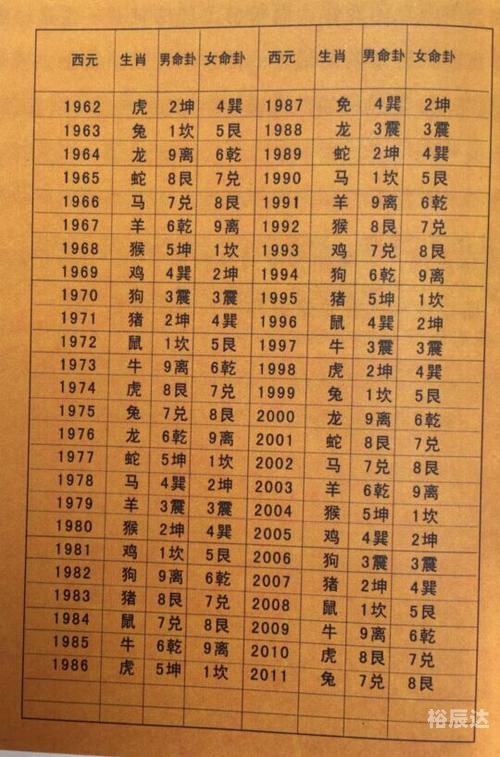 西元 生肖 男命卦 女命卦 西元 生肖 男命卦 女命卦
1962 虎 2坤 4巽 1987 兔 4巽 2坤
1963 兔 1坎 5艮 1988 龙 3震 3震
1964 龙 9离 6乾 1989 蛇 2坤 4巽
1965 蛇 8艮 7兑 1990 马 1坎 5艮
1966 马 7兑 8艮 1991 羊 9离 6乾
1967 羊 6乾 9离 1992 猴 8艮 7兑
1968 猴 5坤 1坎 1993 鸡 7兑 8艮
1969 鸡 4巽 2坤 1994 狗 6乾 9离
1970 狗 3震 3震 1995 猪 5坤 1坎
1971 猪 2坤 4巽 1996 鼠 4巽 2坤
1972 鼠 1坎 5艮 1997 牛 3震 3震
1973 牛 9离 6乾 1998 虎 2坤 4巽
1974 虎 8艮 7兑 1999 兔 1坎 5艮
1975 兔 7兑 8艮 2000 龙 9离 6乾
1976 龙 6乾 9离 2001 蛇 8艮 7兑
1977 蛇 5坤 1坎 2002 马 7兑 8艮
1978 马 4巽 2坤 2003 羊 6乾 9离
1979 羊 3震 3震 2004 猴 5坤 1坎
1980 猴 2坤 4巽 2005 鸡 4巽 2坤
1981 鸡 1坎 5艮 2006 狗 3震 3震
1982 狗 9离 6乾 2007 猪 2坤 4巽
1983 猪 8艮 7兑 2008 鼠 1坎 5艮
1984 鼠 7兑 8艮 2009 牛 9离 6乾
1985 牛 6乾 9离 2010 虎 8艮 7兑
1986 虎 5坤 1坎 2011 兔 7兑 8艮
裕辰达